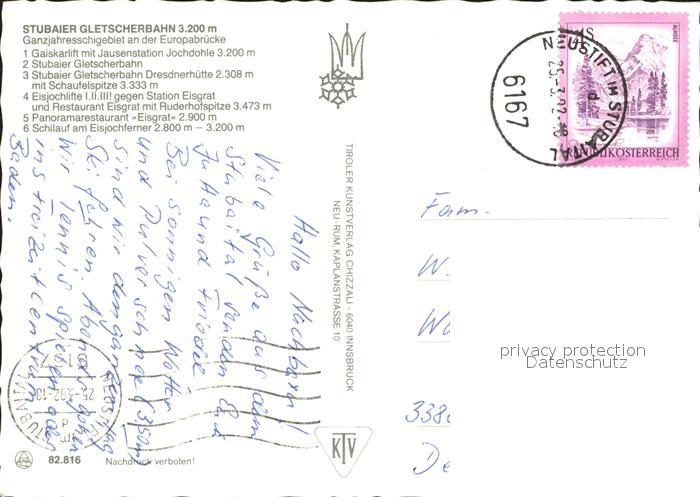 STUBAIER GLETSCHERBAHN 3.200 m
Ganzjahresschigebiet an der Europabrücke
1 Gaiskarlift mit Jausenstation Jochdohle 3.200 m
2 Stubaier Gletscherbahn
3 Stubaier Gletscherbahn Dresdnerhütte 2.308 m
mit Schaufelspitze 3.333 m
4 Eisjochlifte I.II.III! gegen Station Eisgrat
und Restaurant Eisgrat mit Ruderhofspitze 3.473 m
5 Panoramarestaurant »Eisgrat« 2.900 m
6 Schilauf am Eisjochferner 2.800 m – 3.200 m
Hallo Nachbarn!
Viele Grüße aus dem
Stubaital senden Euch
Jutta und Friedel
Bei sonnigen Wetter
und Pulverschnee (3,50 m)
sind wir den ganzen Tag
Ski fahren. Abends gehen
wir Tennis spielen oder
ins Freizeitcentrum
Baden.
TIROLER KUNSTVERLAG CHIZZALI - 6040 INNSBRUCK
NEU-RUM, KAPLANSTRASSE 10
KTV
82.816 Nachdruck verboten!
NEUSTIFT IM STUBAITAL
6167
d
S
ALMSEE
REPUBLIK ÖSTERREICH
Fam.
W.
338
privacy protection
Datenschutz